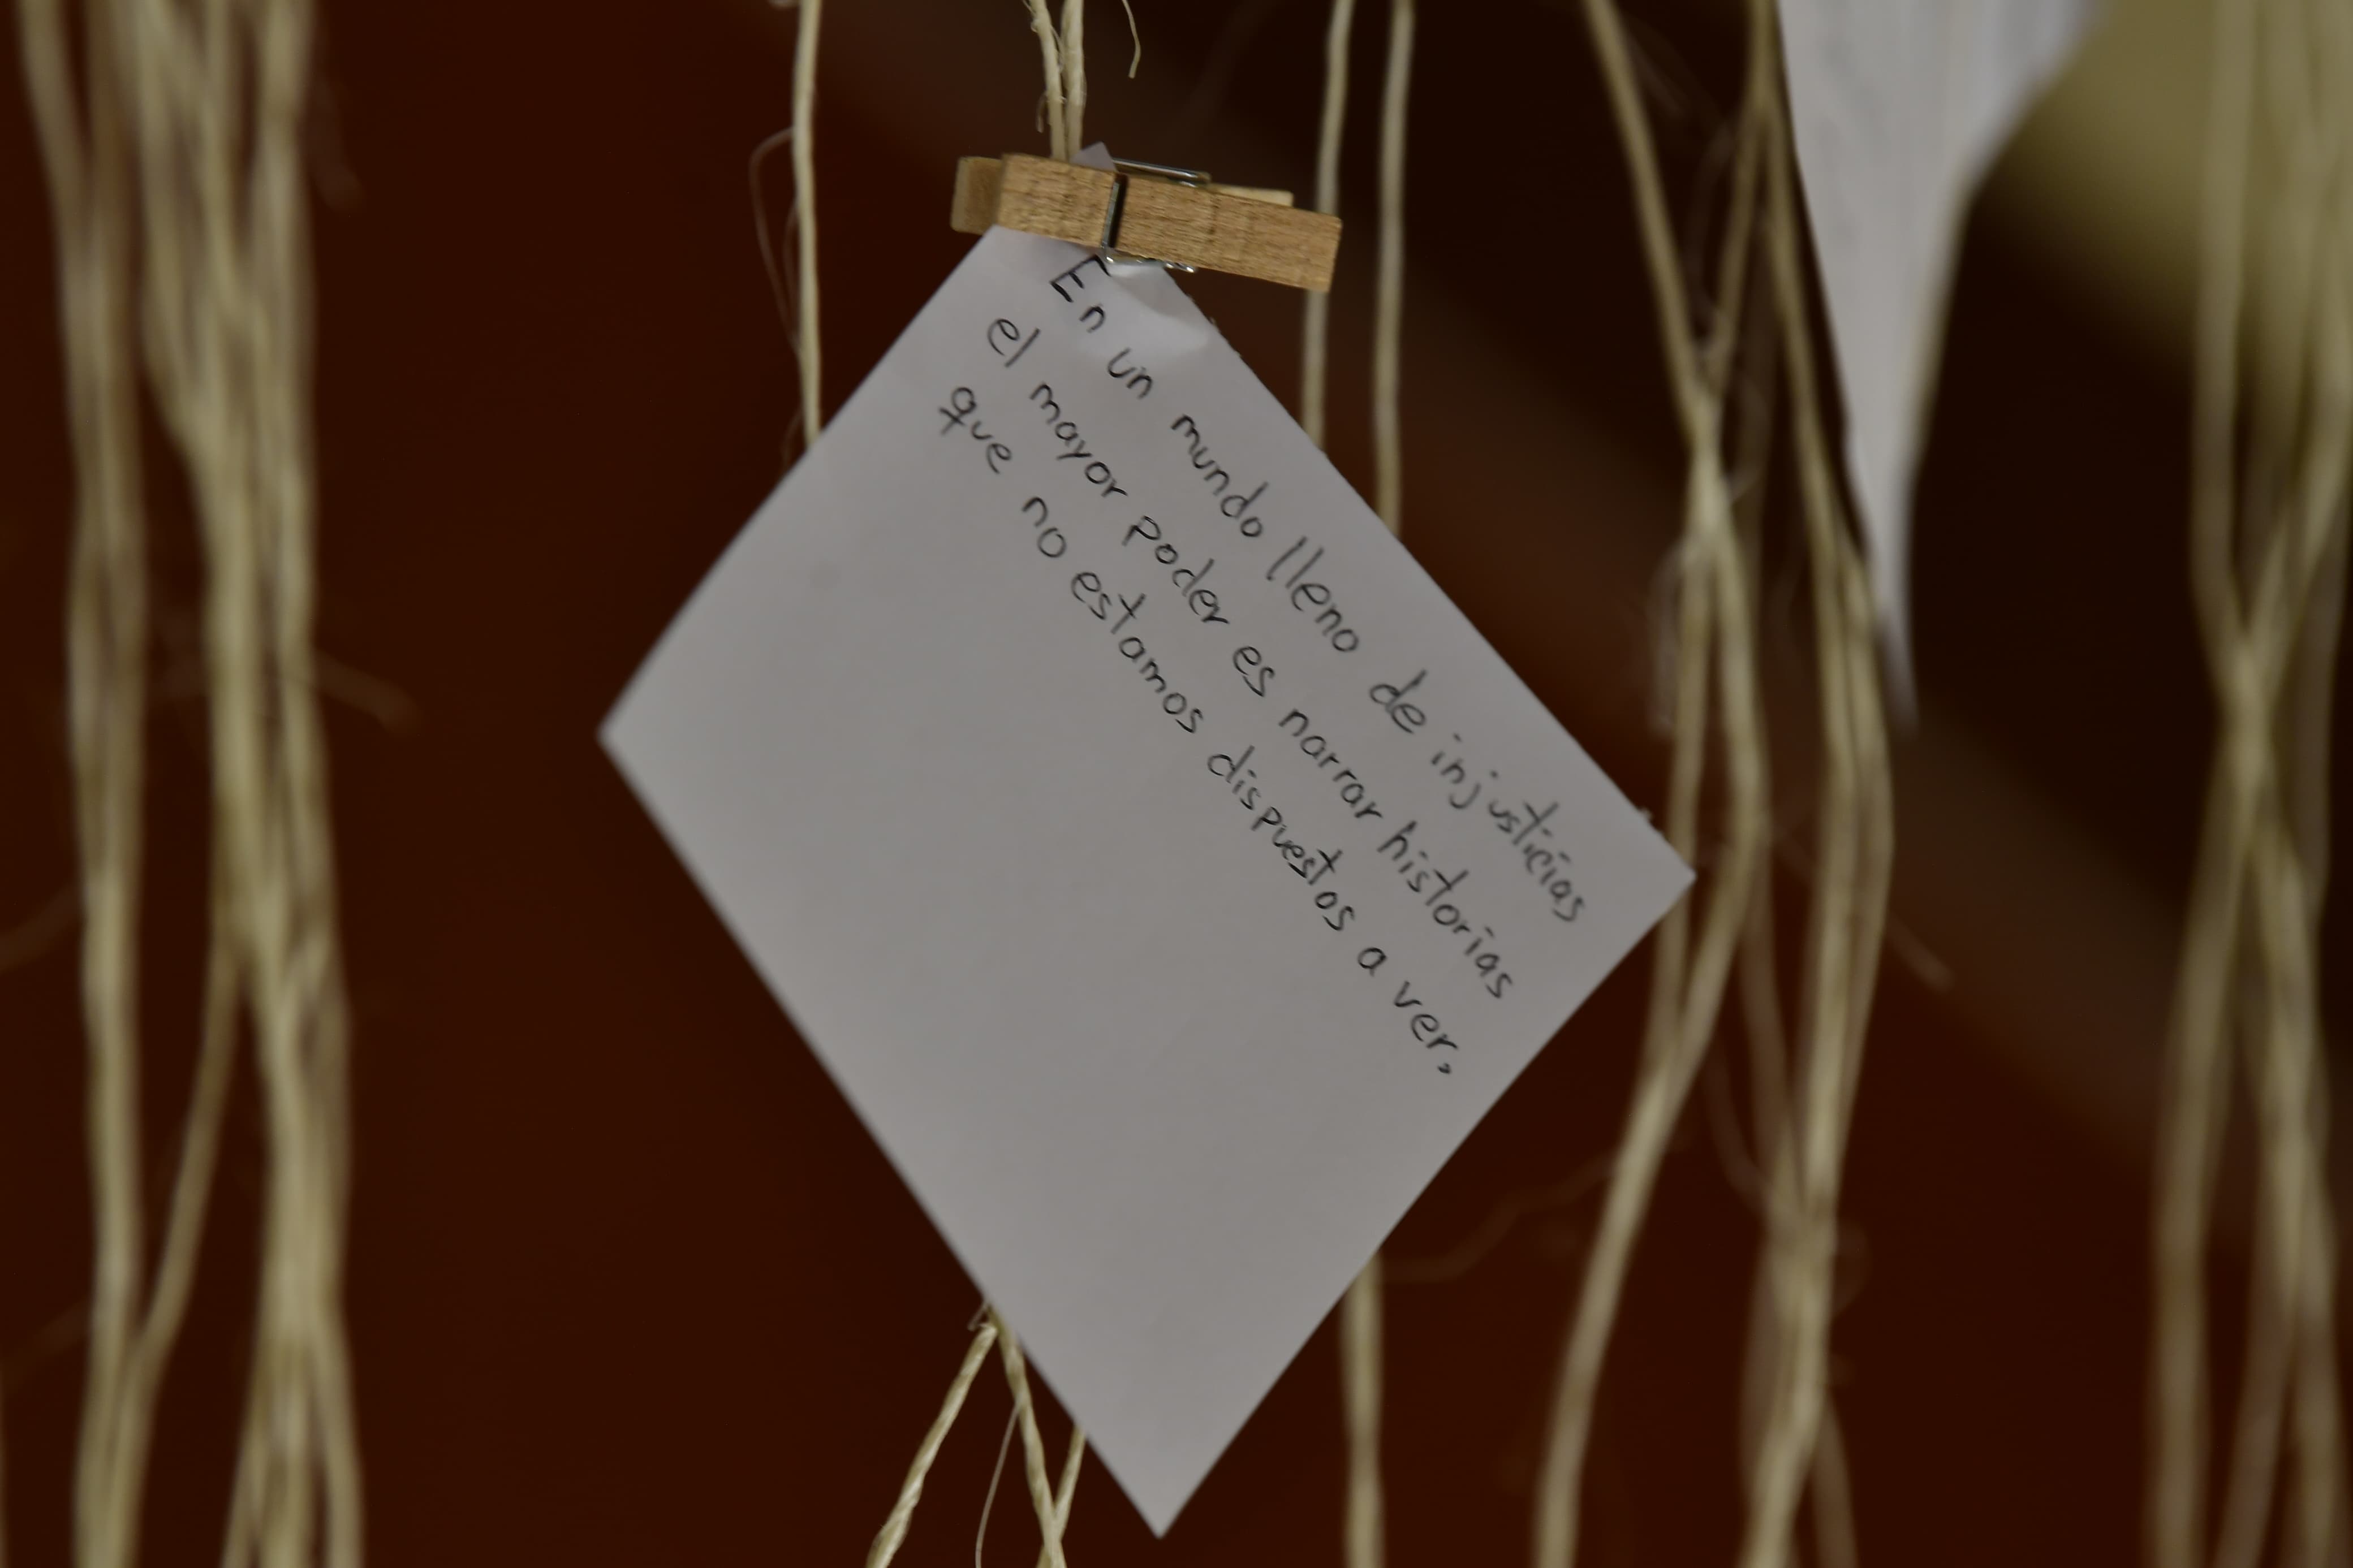 En un mundo lleno de injusticias
el mayor poder es narrar historias
que no estamos dispuestos a ver.